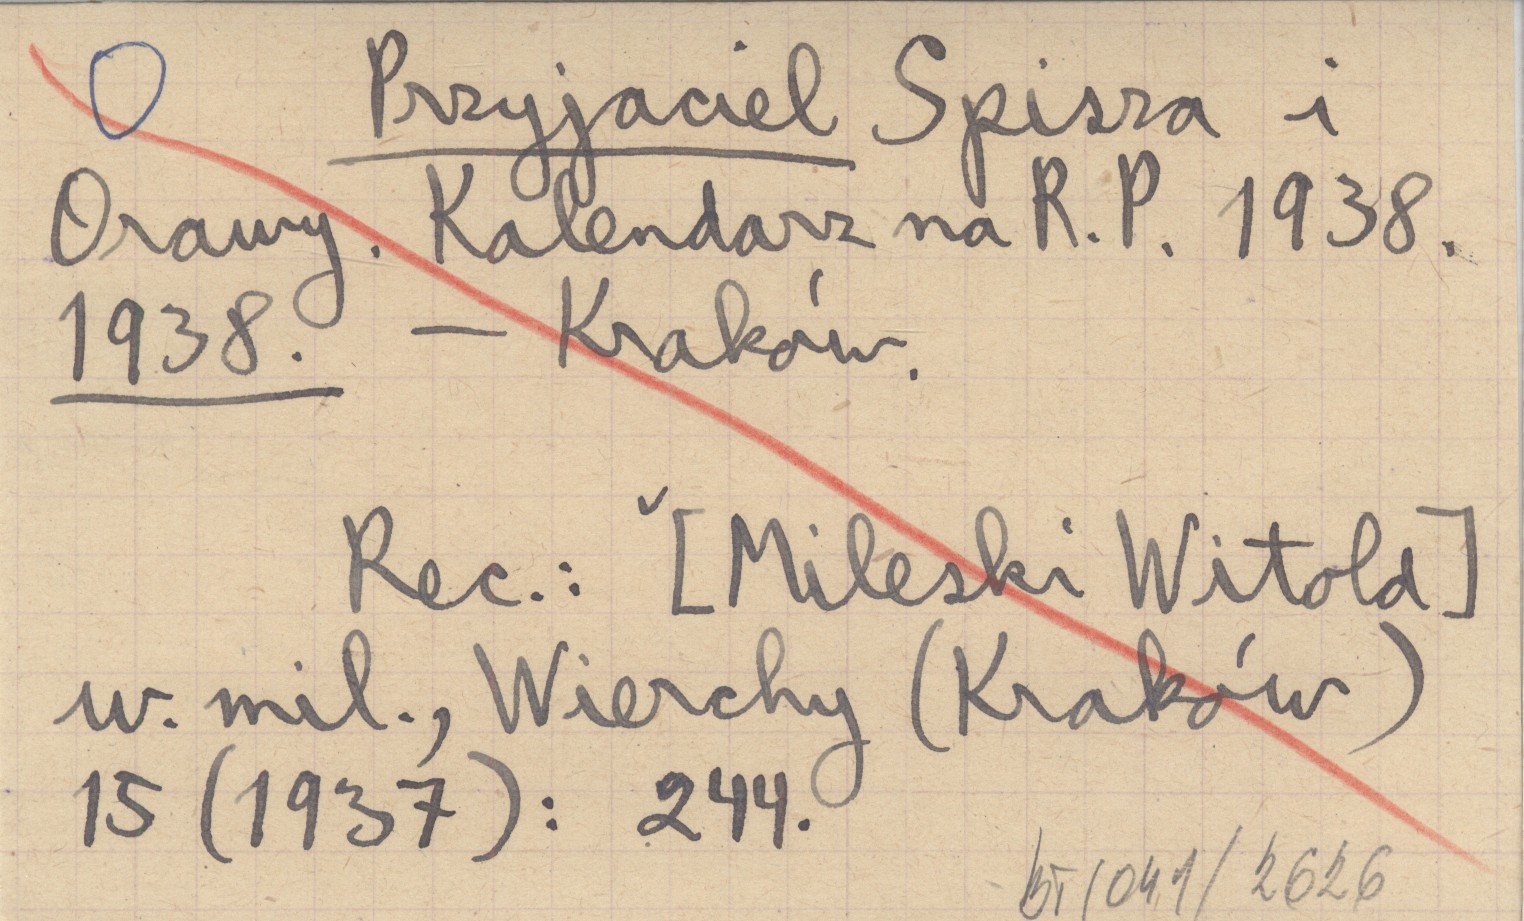 Przyjaciel Spisza i
Orawy. Kalendarz na R.P. 1938.
1938. — Kraków.
Rec.: [Mileski Witold]
w. mil., Wierchy (Kraków)
15 (1937): 244.
BT/041/2626